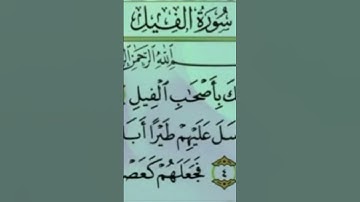 سُورَةُ الْفِيلِ
اللَّهِ الرَّحْمَٰنِ
بِأَصْحَابِ الْفِيلِ
عَلَيْهِمْ طَيْرًا
٤ فَجَعَلَهُمْ